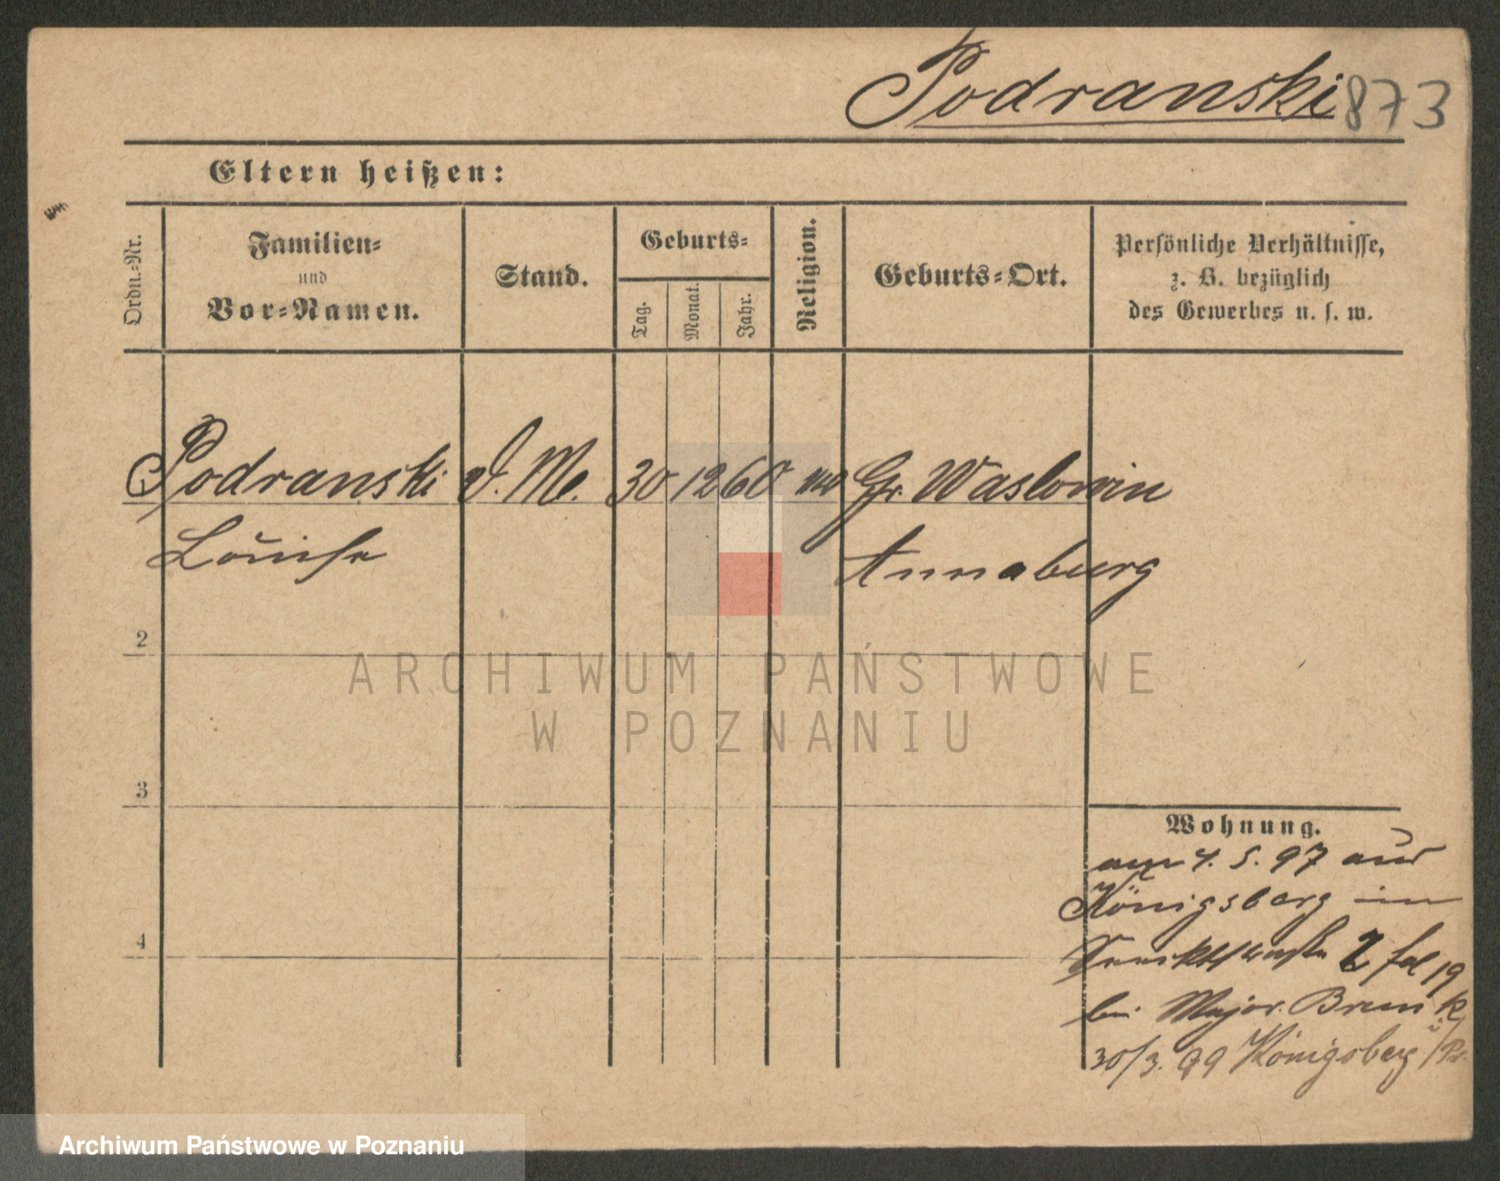 Podranski 873
Eltern heißen:
Ordn.-Nr.
Familien-
und
Vor-Namen.
Stand.
Geburts-
Tag.
Monat.
Jahr.
Religion.
Geburts-Ort.
Persönliche Verhältnisse,
z. B. bezüglich
des Gewerbes u. s. w.
Podranski D. M. 30 12 60 Gr Waslowin
Louise Annaburg
2
ARCHIWUM PAŃSTWOWE
W POZNANIU
3
Wohnung.
am 4. 5. 97 aus
Königsberg in
2 fol 19
bei Major Brunk
30/3. 99 Königsberg i/Pr.
4
Archiwum Państwowe w Poznaniu